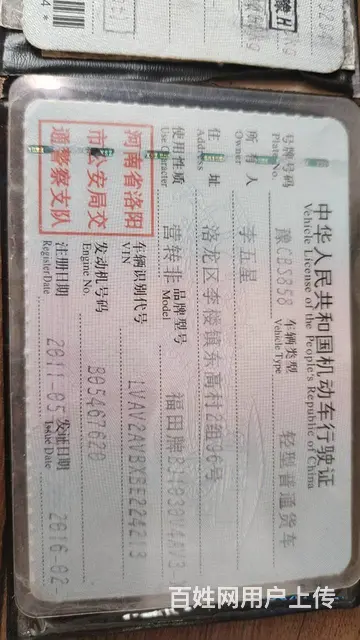 中华人民共和国机动车行驶证
Vehicle License of the People's Republic of China
号牌号码 豫C8S858 车辆类型 轻型普通货车
Plate No. Vehicle Type
所有人 李五星
Owner
住址 洛龙区李楼镇东高村2组96号
Address
使用性质 营转非 品牌型号 福田牌
Use Character Model
河南省洛阳
市公安局交
通警察支队
车辆识别代号
VIN LVAV2AVBXBE224213
发动机号码 B05467620
Engine No.
注册日期 2011-05 发证日期 2016-02-
Register Date Issue Date
百姓网用户上传